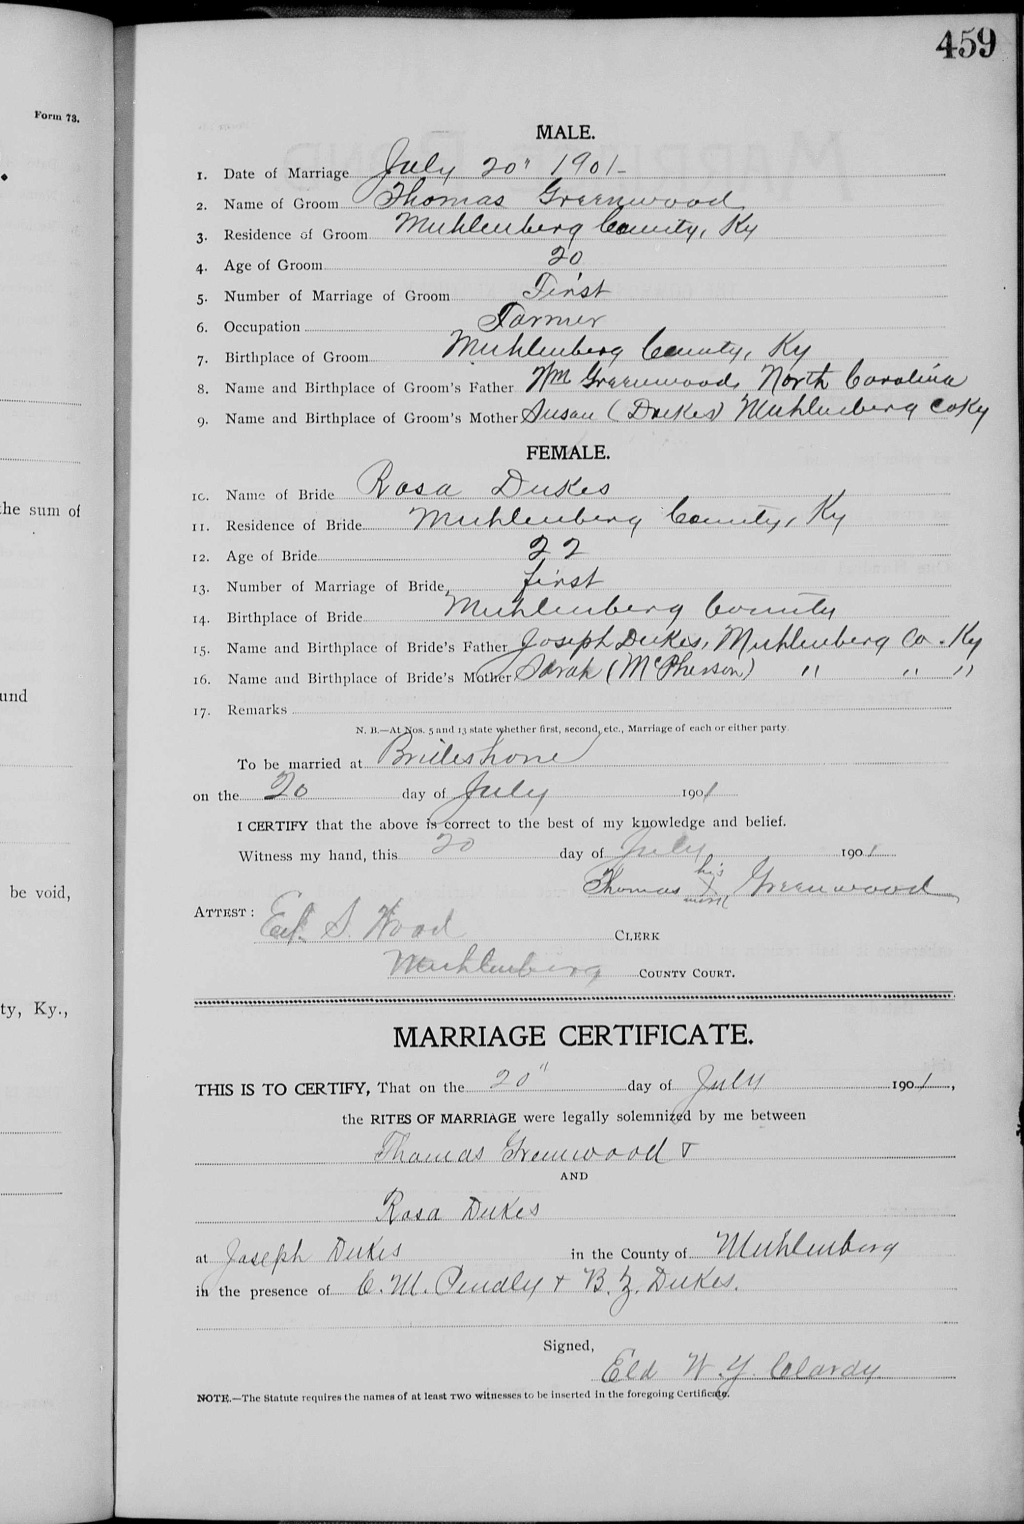 459
Form 73.
MALE.
1. Date of Marriage July 20" 1901-
2. Name of Groom Thomas Greenwood
3. Residence of Groom Muhlenberg County, Ky
4. Age of Groom 20
5. Number of Marriage of Groom First
6. Occupation Farmer
7. Birthplace of Groom Muhlenberg County, Ky
8. Name and Birthplace of Groom's Father Wm Greenwood, North Carolina
9. Name and Birthplace of Groom's Mother Susan (Dukes) Muhlenberg Co Ky
FEMALE.
10. Name of Bride Rosa Dukes
11. Residence of Bride Muhlenberg County, Ky
12. Age of Bride 22
13. Number of Marriage of Bride, first
14. Birthplace of Bride Muhlenberg County
15. Name and Birthplace of Bride's Father Joseph Dukes, Muhlenberg Co. Ky
16. Name and Birthplace of Bride's Mother Sarah (McPherson) " " "
17. Remarks
N. B.—At Nos. 5 and 13 state whether first, second, etc., Marriage of each or either party.
To be married at
on the 20 day of July 1901
I CERTIFY that the above is correct to the best of my knowledge and belief.
Witness my hand, this 20 day of July 1901
his
Thomas X Greenwood
mark
ATTEST: S. Wood CLERK
Muhlenberg COUNTY COURT.
MARRIAGE CERTIFICATE.
THIS IS TO CERTIFY, That on the 20" day of July 1901,
the RITES OF MARRIAGE were legally solemnized by me between
Thomas Greenwood &
AND
Rosa Dukes
at Joseph Dukes in the County of Muhlenberg
in the presence of C. M. Pendly & B. Z. Dukes.
Signed,
Eld W. Y. Clardy
NOTE.—The Statute requires the names of at least TWO witnesses to be inserted in the foregoing Certificate.
the sum of
und
be void,
ty, Ky.,